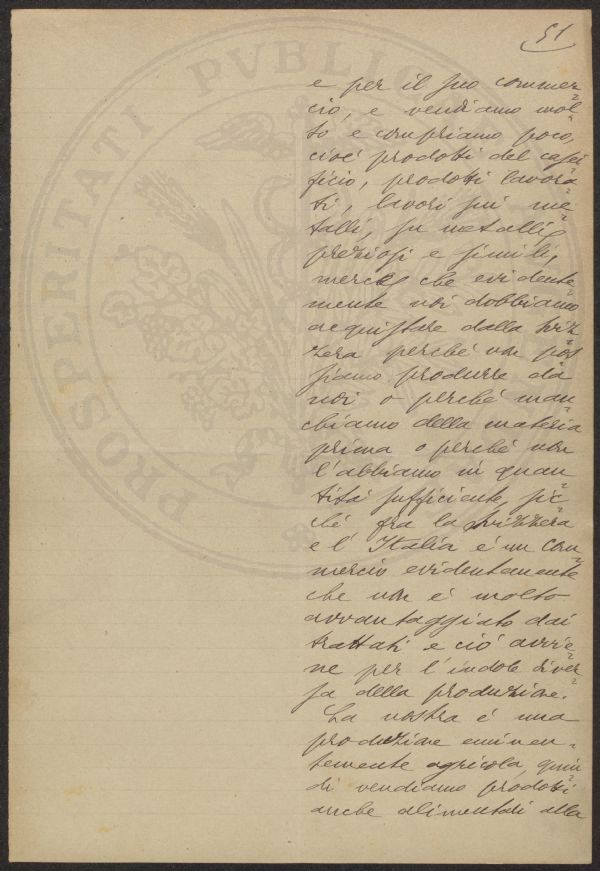 51
PROSPERITATI PVBLIC
e per il suo commer=
cio, e vendiamo mol=
to e compriamo poco,
cioè prodotti del casei
ficio, prodotti lavora=
ti, lavori sui me=
talli, su metalli
preziosi e simili,
merce che evidente=
mente noi dobbiamo
acquistare dalla Sviz=
zera perchè non pos=
siamo produrre da
noi o perchè man=
chiamo della materia
prima o perchè non
l'abbiamo in quan=
tità sufficiente, sic=
chè fra la Svizzera
e l'Italia è un com=
mercio evidentemente
che non è molto
avvantaggiato dai
trattati e ciò avvie=
ne per l'indole diver=
sa della produzione.
La nostra è una
produzione eminen=
temente agricola, quin=
di vendiamo prodotti
anche alimentari alla